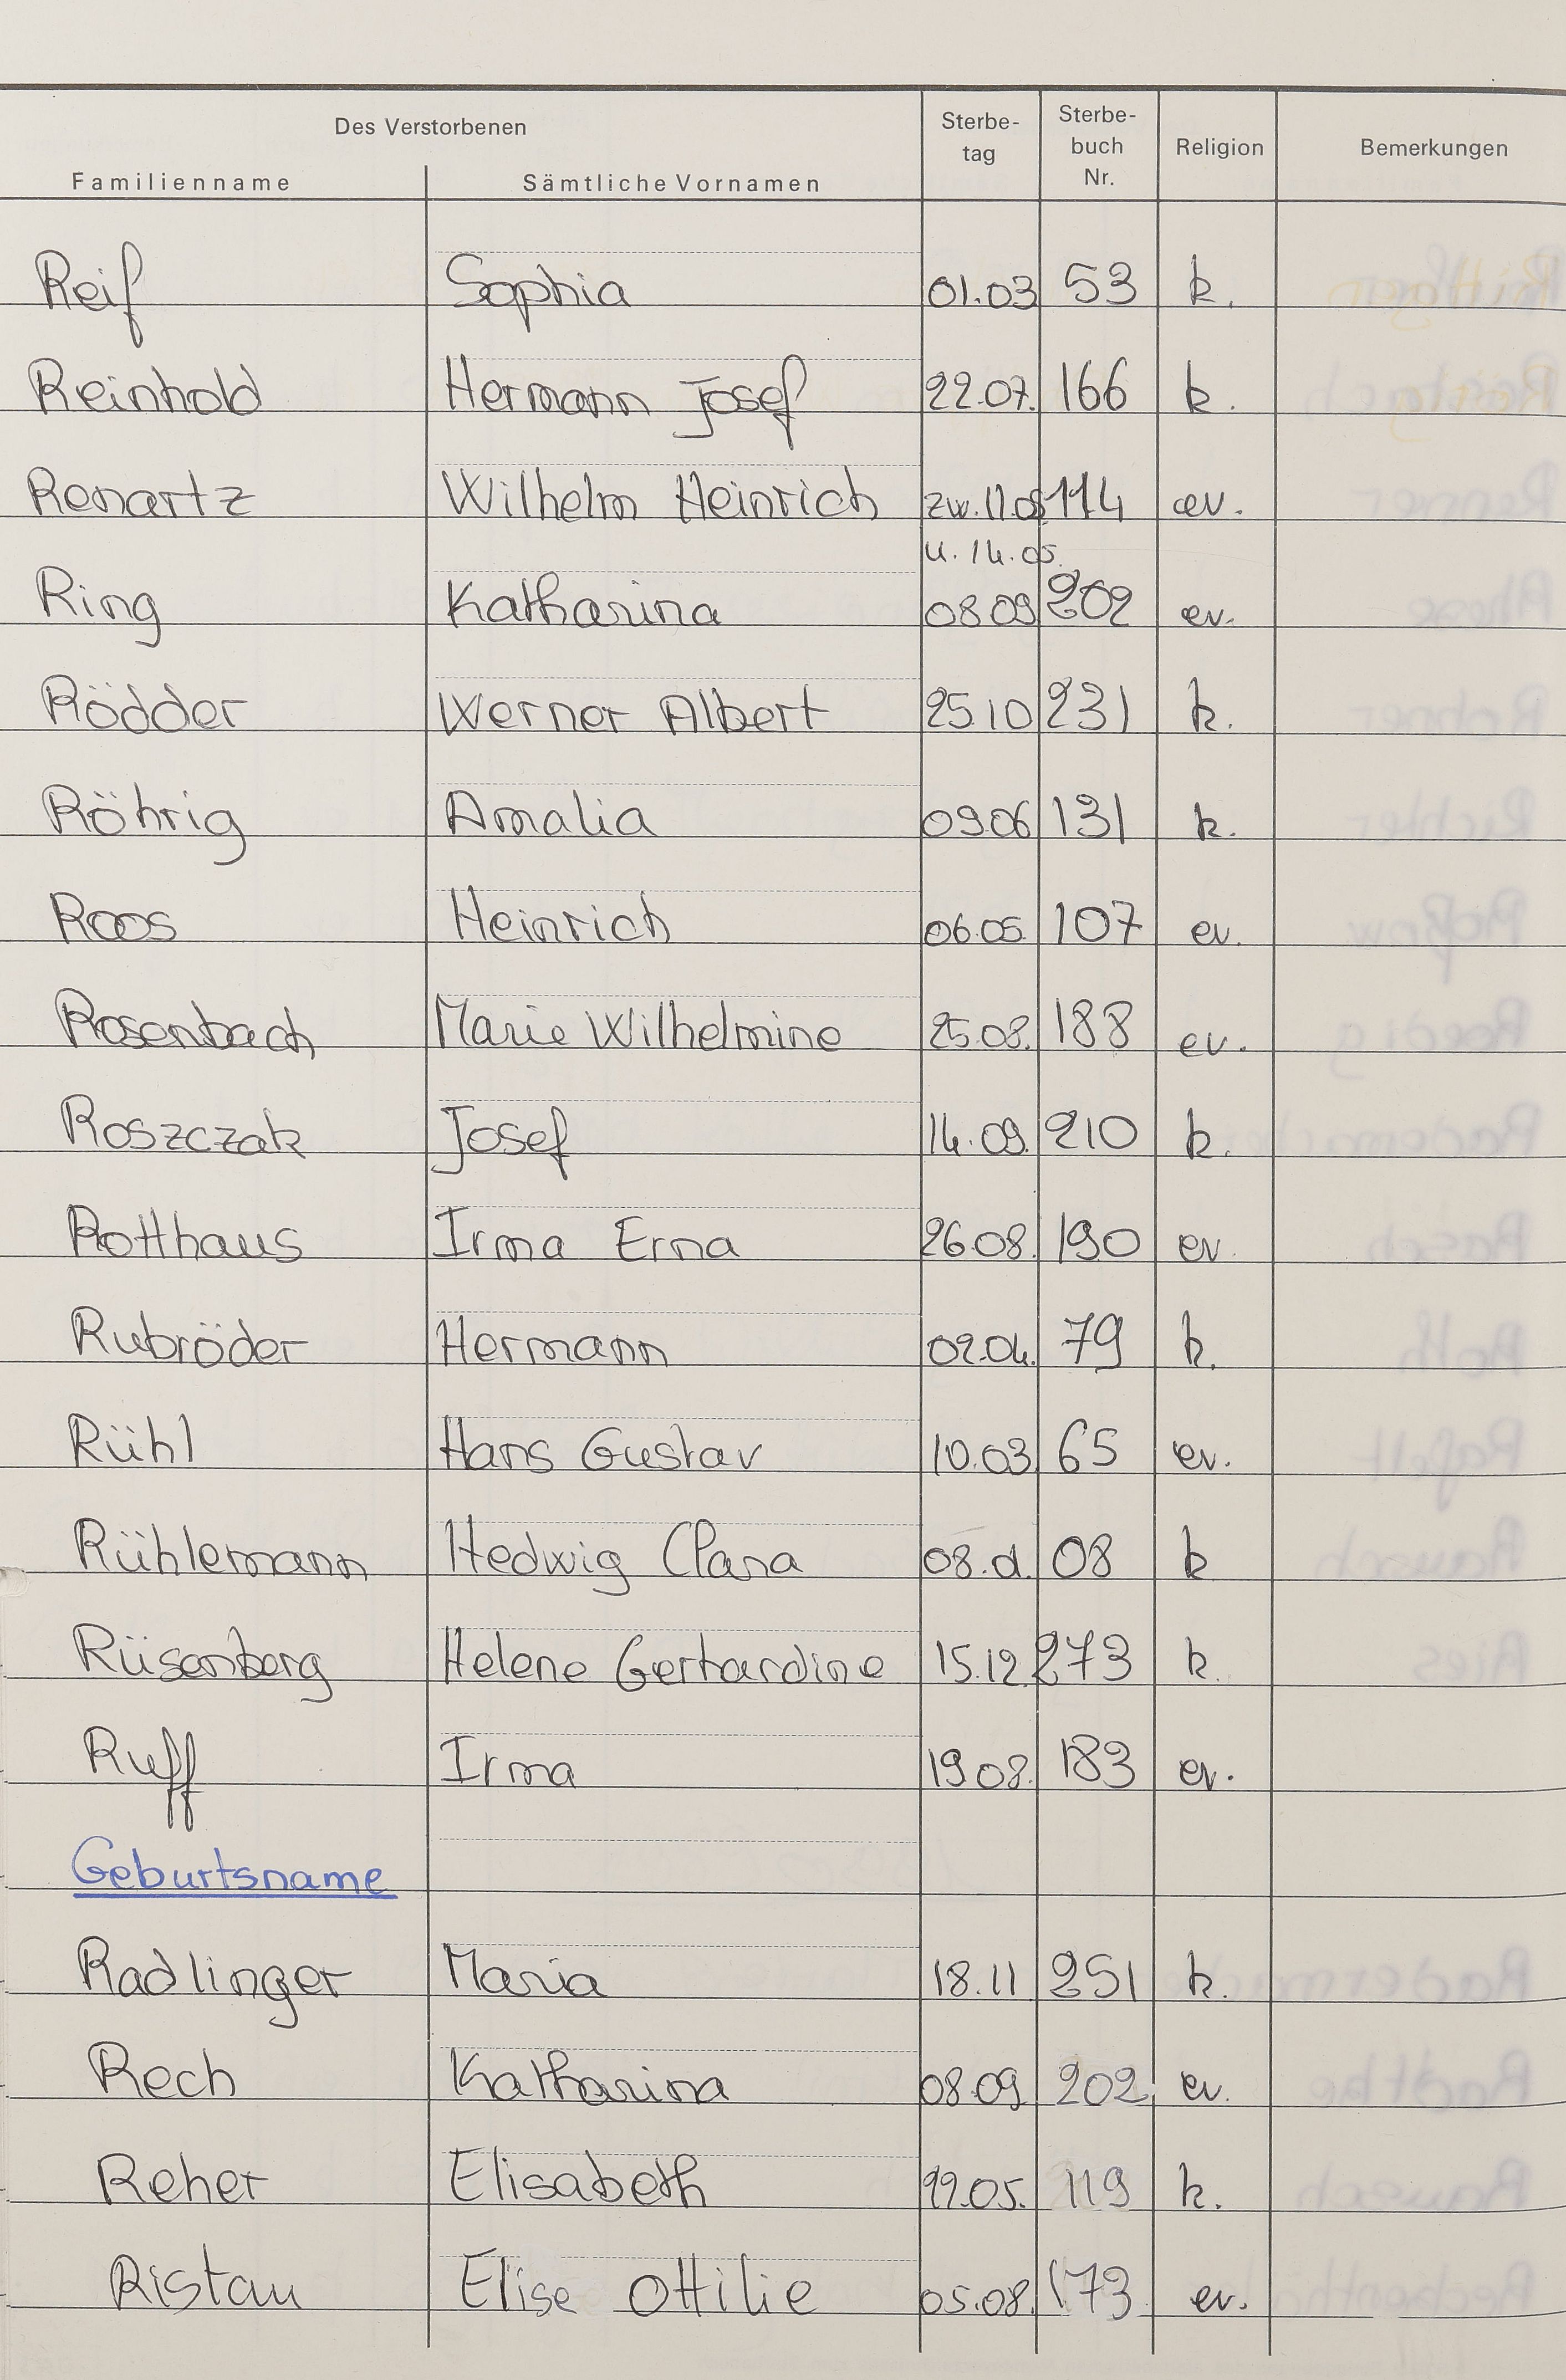 Des Verstorbenen
Familienname Sämtliche Vornamen Sterbe-tag Sterbe-buch Nr. Religion Bemerkungen
Reif Sophia 01.03 53 k.
Reinhold Hermann Josef 22.07. 166 k.
Renartz Wilhelm Heinrich zw. 11.05 114 ev.
u. 14.05.
Ring Katharina 08 09 202 ev.
Rödder Werner Albert 25 10 231 k.
Röhrig Amalia 09 06 131 k.
Roos Heinrich 06.05. 107 ev.
Rosenbach Marie Wilhelmine 25.08. 188 ev.
Roszczak Josef 14.09. 210 k.
Rotthaus Irma Erna 26.08. 190 ev.
Rubröder Hermann 02.04. 79 k.
Rühl Hans Gustav 10.03 65 ev.
Rühlemann Hedwig Clara 08. 08 k
Rüsenberg Helene Gerhardine 15.12. 273 k.
Ruff Irma 19 08. 183 ev.
Geburtsname
Radlinger Maria 18.11 251 k.
Rech Katharina 08.09 202 ev.
Reher Elisabeth 22.05. 119 k.
Ristau Elise Ottilie 05.08. 173 ev.